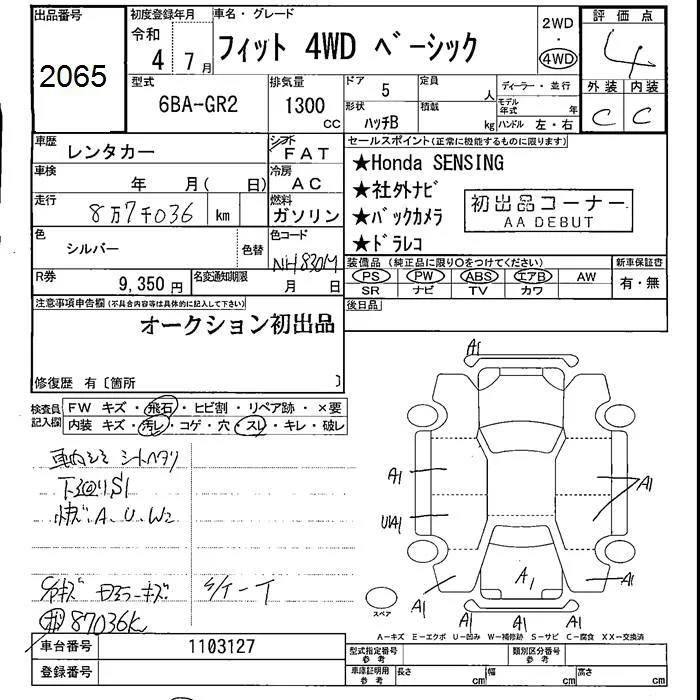 出品番号
2065
初度登録年月
令和
4年7月
車名・グレード
フィット 4WD ベーシック
2WD
・
4WD
評価点
4
外装 内装
C C
型式
6BA-GR2
排気量
1300
cc
ドア 5
定員 人
形状 ハッチB
積載 kg
ディーラー・並行
モデル年式 年
ハンドル 左・右
車歴 レンタカー
シフト FAT
車検 年 月( 日)
冷房 AC
走行 8万7千036 km
燃料 ガソリン
色 シルバー
色替
色コード NH830M
R券 9,350円
名変通知期限 月 日
セールスポイント(正常に機能するものに限ります)
★Honda SENSING
★社外ナビ
★バックカメラ
★ドラレコ
初出品コーナー
AA DEBUT
装備品(純正品に限り○をつけてください)
PS PW ABS エアB AW
SR ナビ TV カワ
新車保証書
有・無
後日品
注意事項申告欄(不具合内容等は具体的に記入して下さい)
オークション初出品
修復歴 有〔箇所 〕
検査員記入欄
FW キズ・飛石・ヒビ割・リペア跡・×要
内装 キズ・汚レ・コゲ・穴・スレ・キレ・破レ
シートヘタリ
下回りS1
A、U、W2
87036K
A1
A1
A1
UA1
A1
A1
A1
A1
A1
A1
スペア
A-キズ E-エクボ U-凹み W-補修跡 S-サビ C-腐食 XX-交換済
車台番号 1103127
登録番号
型式指定番号 参考
類別区分番号 参考
車庫証明用 参考
長さ cm
幅 cm
高さ cm